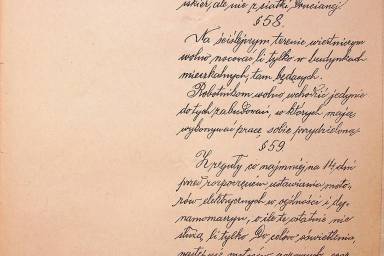 iskier, ale nie z siatki drucianej
§ 58.
Na ściślejszym terenie wiertniczym
wolno nocować li tylko w budynkach
mieszkalnych, tam będących.
Robotnikom wolno wchodzić jedynie
do tych zabudowań, w których mają
wykonywać pracę sobie przydzieloną.
§ 59
Z reguły co najmniej na 14 dni
przed rozpoczęciem ustawiania moto-
rów elektrycznych w ogólności i dy-
namomaszyn, o ile te ostatnie nie
służą li tylko do celów oświetlenia,